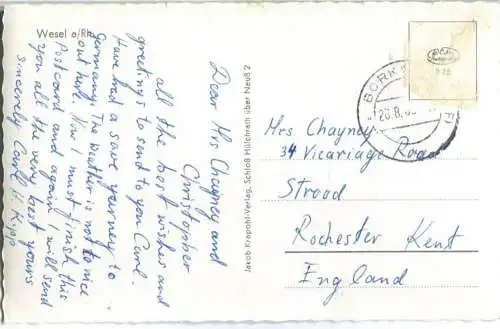 Wesel a/Rh.
Dear Mrs Chayney and
Christopher
all the best wishes and
greetings to send to you Carl.
Have had a save yourney to
Germany. The weather is not to nice
out here. Now I must finish this
Postcard and again I will send
you all the very best yours
sincerely Carl H.
Jakob Krapohl-Verlag, Schloß Müllchrath über Neuß 2
BORK
Mrs Chayney
34 Vicariage Road
Strood
Rochester Kent
England